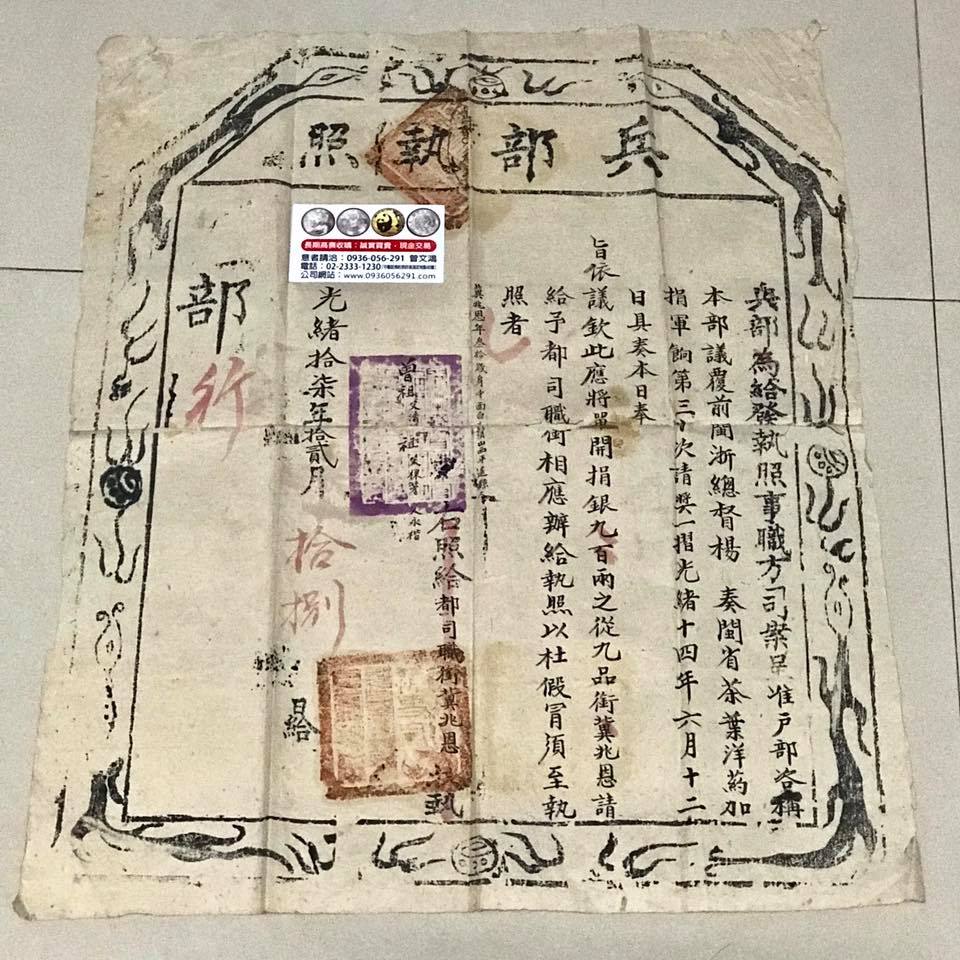 兵部執照
兵部為給發執照事職方司案呈准戶部咨稱
本部議覆前閩浙總督楊 奏閩省茶葉洋藥加
捐軍餉第三十次請獎一摺光緒十四年六月十二
日具奏本日奉
旨依議欽此應將單開捐銀九百兩之從九品銜冀兆恩請
給予都司職銜相應辦給執照以杜假冒須至執
照者
冀兆恩年叁拾歲身中面白
曾祖 祖
右照給都司職銜冀兆恩 執
光緒拾柒年拾貳月 拾捌 日給
部
行
長期高價收購:誠實買賣、現金交易
意者請洽:0936-056-291 曾文鴻
電話:02-2333-1230
公司網站:www.0936056291.com